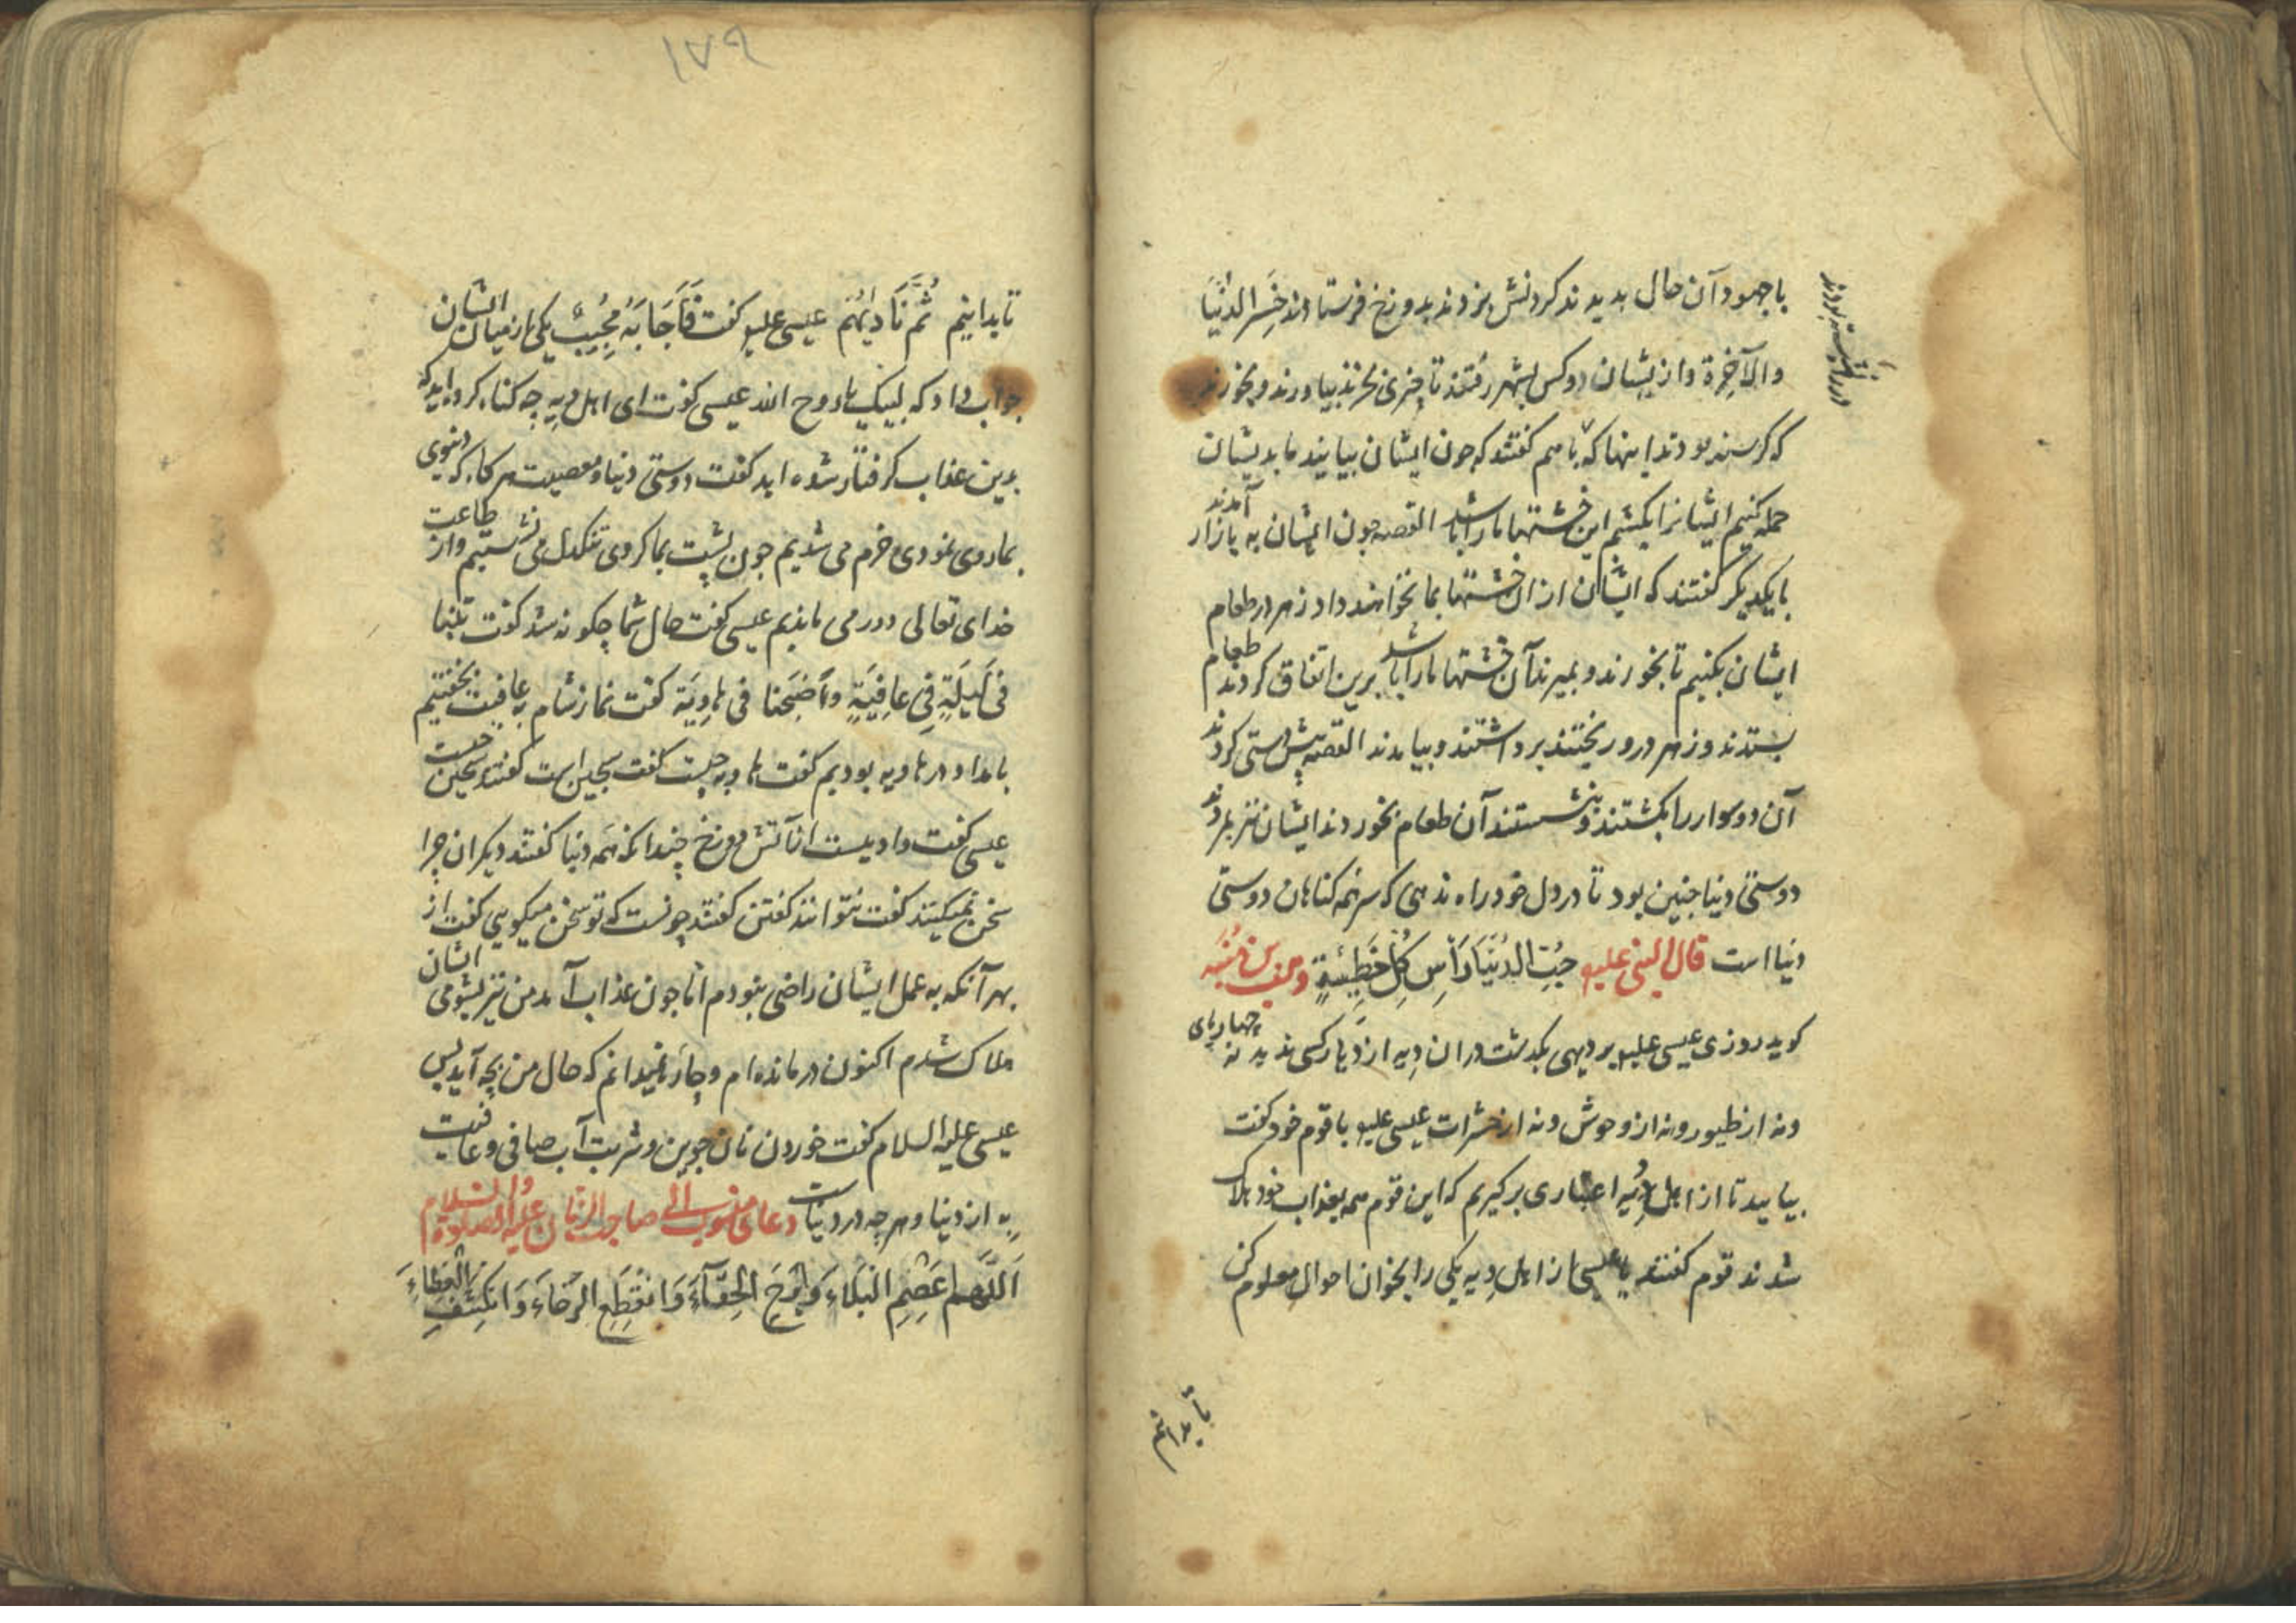 با جهود آن حال بدیدند کردنش بزدند بدوزخ فرستادند خَسِرَ الدُّنْیَا
والآخِرَة وازیشان دو کس بشهر رفتند تا چیزی بخرند بیاورند و بخورند
که کرسنه بودند اینها که با هم کفتند که چون ایشان بیایند ما بدیشان
حمله کنیم ایشانرا بکشیم این خشتها ما را باشد القصه چون ایشان به بازار آمدند
با یکدیکر کفتند که ایشان از ان خشتها بما نخواهند داد زهر در طعام
ایشان بکنیم تا بخورند و بمیرند آن خشتها ما را باشد برین اتفاق کردند طعام
بستدند و زهر درو ریختند برداشتند و بیامدند القصه پیش دستی کردند
آن دو سوار را بکشتند و بنشستند آن طعام بخوردند ایشان نیز بمردند
دوستی دنیا چنین بود تا در دل خود راه ندهی که سر همه کناهان دوستی
دنیا است قال النبی علیه حُبُّ الدُّنْیَا رَأسِ کُلِّ خَطِیئَةٍ وهب بن منبه
کوید روزی عیسی علیه بر دیهی بکذشت دران دیه از دیار کسی ندید نه چهارپای
ونه از طیور ونه از وحوش ونه از حشرات عیسی علیه با قوم خود کفت
بیایید تا از اهل دیه اعتباری برکیریم که این قوم همه بعذاب خود هلاک
شدند قوم کفتند یا عیسی از اهل دیه یکی را بخوان احوال معلوم کن
تا بدانیم
تا بدانیم ثُمَّ نَادَیْتُهُم عیسی علیه کفت فَأَجَابَهُ مُجِیبٌ یکی از میان ایشان
جواب داد که لبیک یا روح الله عیسی کفت ای اهل دیه چه کناه کرده اید که
بدین عذاب کرفتار شده اید کفت دوستی دنیا و معصیت هر کاه که دنیوی
بما روی نمودی خرم می شدیم چون پشت بما کردی تنکدل می نشستیم واز طاعت
خدای تعالی دور می ماندیم عیسی کفت حال شما چکونه شد کفت بتنا
فی لَیلَةٍ فی عافِیَةٍ وأصْبَحنا فی هاوِیَة کفت نماز شام بعافیت بخفتیم
بامداد در هاویه بودیم کفت هاویه چیست کفت سجین است کفتند سجین چیست
عیسی کفت وادیست از آتش دوزخ چندانکه همه دنیا کفتند دیکران چرا
سخن نمیکنند کفت نتوانند کفتن کفتند چونست که تو سخن میکویی کفت از
بهر آنکه به عمل ایشان راضی نبودم اما چون عذاب آمد من نیز بشومی ایشان
هلاک شدم اکنون درمانده ام و چاره نمیدانم که حال من بچه آید پس
عیسی علیه السلام کفت خوردن نان جوین وشربت آب صافی وعافیت
به از دنیا وهر چه در دنیاست دعای منسوب الی صاحب الزمان علیه الصلوة والسلام
اَللَّهُمَّ عَظُمَ الْبَلَاءُ وَبَرِحَ الْخِفَآءُ وَانْقَطَعَ الرَّجَاءُ وَانْکَشَفَ الْغِطَاءُ